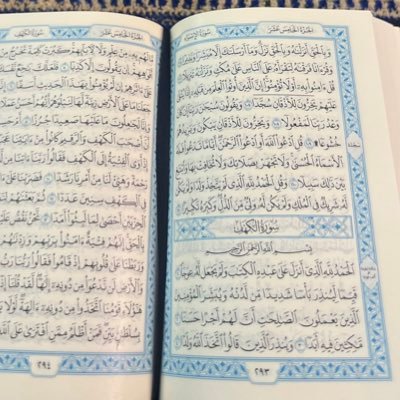 الجزء الخامس عشر سورة الإسراء
وَبِٱلْحَقِّ أَنزَلْنَٰهُ وَبِٱلْحَقِّ نَزَلَ وَمَآ أَرْسَلْنَٰكَ إِلَّا مُبَشِّرًا وَنَذِيرًا ١٠٥
وَقُرْءَانًا فَرَقْنَٰهُ لِتَقْرَأَهُۥ عَلَى ٱلنَّاسِ عَلَىٰ مُكْثٍ وَنَزَّلْنَٰهُ تَنزِيلًا ١٠٦
قُلْ ءَامِنُوا۟ بِهِۦٓ أَوْ لَا تُؤْمِنُوٓا۟ إِنَّ ٱلَّذِينَ أُوتُوا۟ ٱلْعِلْمَ مِن قَبْلِهِۦٓ إِذَا يُتْلَىٰ
عَلَيْهِمْ يَخِرُّونَ لِلْأَذْقَانِ سُجَّدًا ١٠٧ وَيَقُولُونَ سُبْحَٰنَ رَبِّنَآ إِن كَانَ
وَعْدُ رَبِّنَا لَمَفْعُولًا ١٠٨ وَيَخِرُّونَ لِلْأَذْقَانِ يَبْكُونَ وَيَزِيدُهُمْ
خُشُوعًا ١٠٩ قُلِ ٱدْعُوا۟ ٱللَّهَ أَوِ ٱدْعُوا۟ ٱلرَّحْمَٰنَ أَيًّا مَّا تَدْعُوا۟ فَلَهُ
ٱلْأَسْمَآءُ ٱلْحُسْنَىٰ وَلَا تَجْهَرْ بِصَلَاتِكَ وَلَا تُخَافِتْ بِهَا وَٱبْتَغِ
بَيْنَ ذَٰلِكَ سَبِيلًا ١١٠ وَقُلِ ٱلْحَمْدُ لِلَّهِ ٱلَّذِى لَمْ يَتَّخِذْ وَلَدًا وَلَمْ يَكُن لَّهُۥ
شَرِيكٌ فِى ٱلْمُلْكِ وَلَمْ يَكُن لَّهُۥ وَلِىٌّ مِّنَ ٱلذُّلِّ وَكَبِّرْهُ تَكْبِيرًۢا ١١١
سورة الكهف
بِسْمِ ٱللَّهِ ٱلرَّحْمَٰنِ ٱلرَّحِيمِ
ٱلْحَمْدُ لِلَّهِ ٱلَّذِىٓ أَنزَلَ عَلَىٰ عَبْدِهِ ٱلْكِتَٰبَ وَلَمْ يَجْعَل لَّهُۥ عِوَجَا ١
قَيِّمًا لِّيُنذِرَ بَأْسًا شَدِيدًا مِّن لَّدُنْهُ وَيُبَشِّرَ ٱلْمُؤْمِنِينَ
ٱلَّذِينَ يَعْمَلُونَ ٱلصَّٰلِحَٰتِ أَنَّ لَهُمْ أَجْرًا حَسَنًا ٢
مَّٰكِثِينَ فِيهِ أَبَدًا ٣ وَيُنذِرَ ٱلَّذِينَ قَالُوا۟ ٱتَّخَذَ ٱللَّهُ وَلَدًا ٤
٢٩٣
الجزء الخامس عشر سورة الكهف
مَّا لَهُم بِهِۦ مِنْ عِلْمٍ وَلَا لِـَٔابَآئِهِمْ كَبُرَتْ كَلِمَةً تَخْرُجُ
أَفْوَٰهِهِمْ إِن يَقُولُونَ إِلَّا كَذِبًا ٥ فَلَعَلَّكَ بَٰخِعٌ
عَلَىٰٓ ءَاثَٰرِهِمْ إِن لَّمْ يُؤْمِنُوا۟ بِهَٰذَا ٱلْحَدِيثِ أَسَفًا ٦
جَعَلْنَا مَا عَلَى ٱلْأَرْضِ زِينَةً لَّهَا لِنَبْلُوَهُمْ أَيُّهُمْ أَحْسَنُ
وَإِنَّا لَجَٰعِلُونَ مَا عَلَيْهَا صَعِيدًا جُرُزًا ٨
أَنَّ أَصْحَٰبَ ٱلْكَهْفِ وَٱلرَّقِيمِ كَانُوا۟ مِنْ ءَايَٰتِنَا عَجَبًا
إِذْ أَوَى ٱلْفِتْيَةُ إِلَى ٱلْكَهْفِ فَقَالُوا۟ رَبَّنَآ ءَاتِنَا مِن
رَحْمَةً وَهَيِّئْ لَنَا مِنْ أَمْرِنَا رَشَدًا ١٠ فَضَرَبْنَا عَلَىٰٓ
فِى ٱلْكَهْفِ سِنِينَ عَدَدًا ١١ ثُمَّ بَعَثْنَٰهُمْ
ٱلْحِزْبَيْنِ أَحْصَىٰ لِمَا لَبِثُوٓا۟ أَمَدًا ١٢ نَّحْنُ نَقُصُّ
بِٱلْحَقِّ إِنَّهُمْ فِتْيَةٌ ءَامَنُوا۟ بِرَبِّهِمْ وَزِدْنَٰهُمْ
وَرَبَطْنَا عَلَىٰ قُلُوبِهِمْ إِذْ قَامُوا۟ فَقَالُوا۟ رَبُّنَا رَبُّ
وَٱلْأَرْضِ لَن نَّدْعُوَا۟ مِن دُونِهِۦٓ إِلَٰهًا لَّقَدْ قُلْنَآ
هَٰٓؤُلَآءِ قَوْمُنَا ٱتَّخَذُوا۟ مِن دُونِهِۦٓ ءَالِهَةً لَّوْلَا
بِسُلْطَٰنٍۭ بَيِّنٍ فَمَنْ أَظْلَمُ مِمَّنِ ٱفْتَرَىٰ عَلَى ٱللَّهِ
٢٩٤